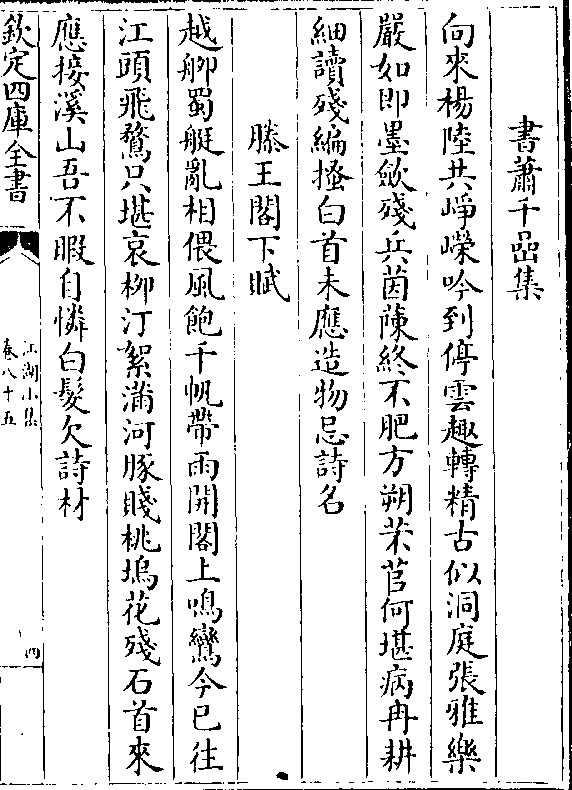 書蕭千嵒集
向來楊陸共崢嶸吟到停雲趣轉精古似洞庭張雅樂
嚴如即墨斂殘兵茵蔯終不肥方朔芣苢何堪病冉耕
細讀殘編搔白首未應造物忌詩名
滕王閣下賦
越舸蜀艇亂相偎風飽千帆帶雨開閣上鳴鸞今已往
江頭飛鶩只堪哀柳汀絮滿河豚賤桃塢花殘石首來
應接溪山吾不暇自憐白髮欠詩材
欽定四庫全書
江湖小集
卷八十五
四